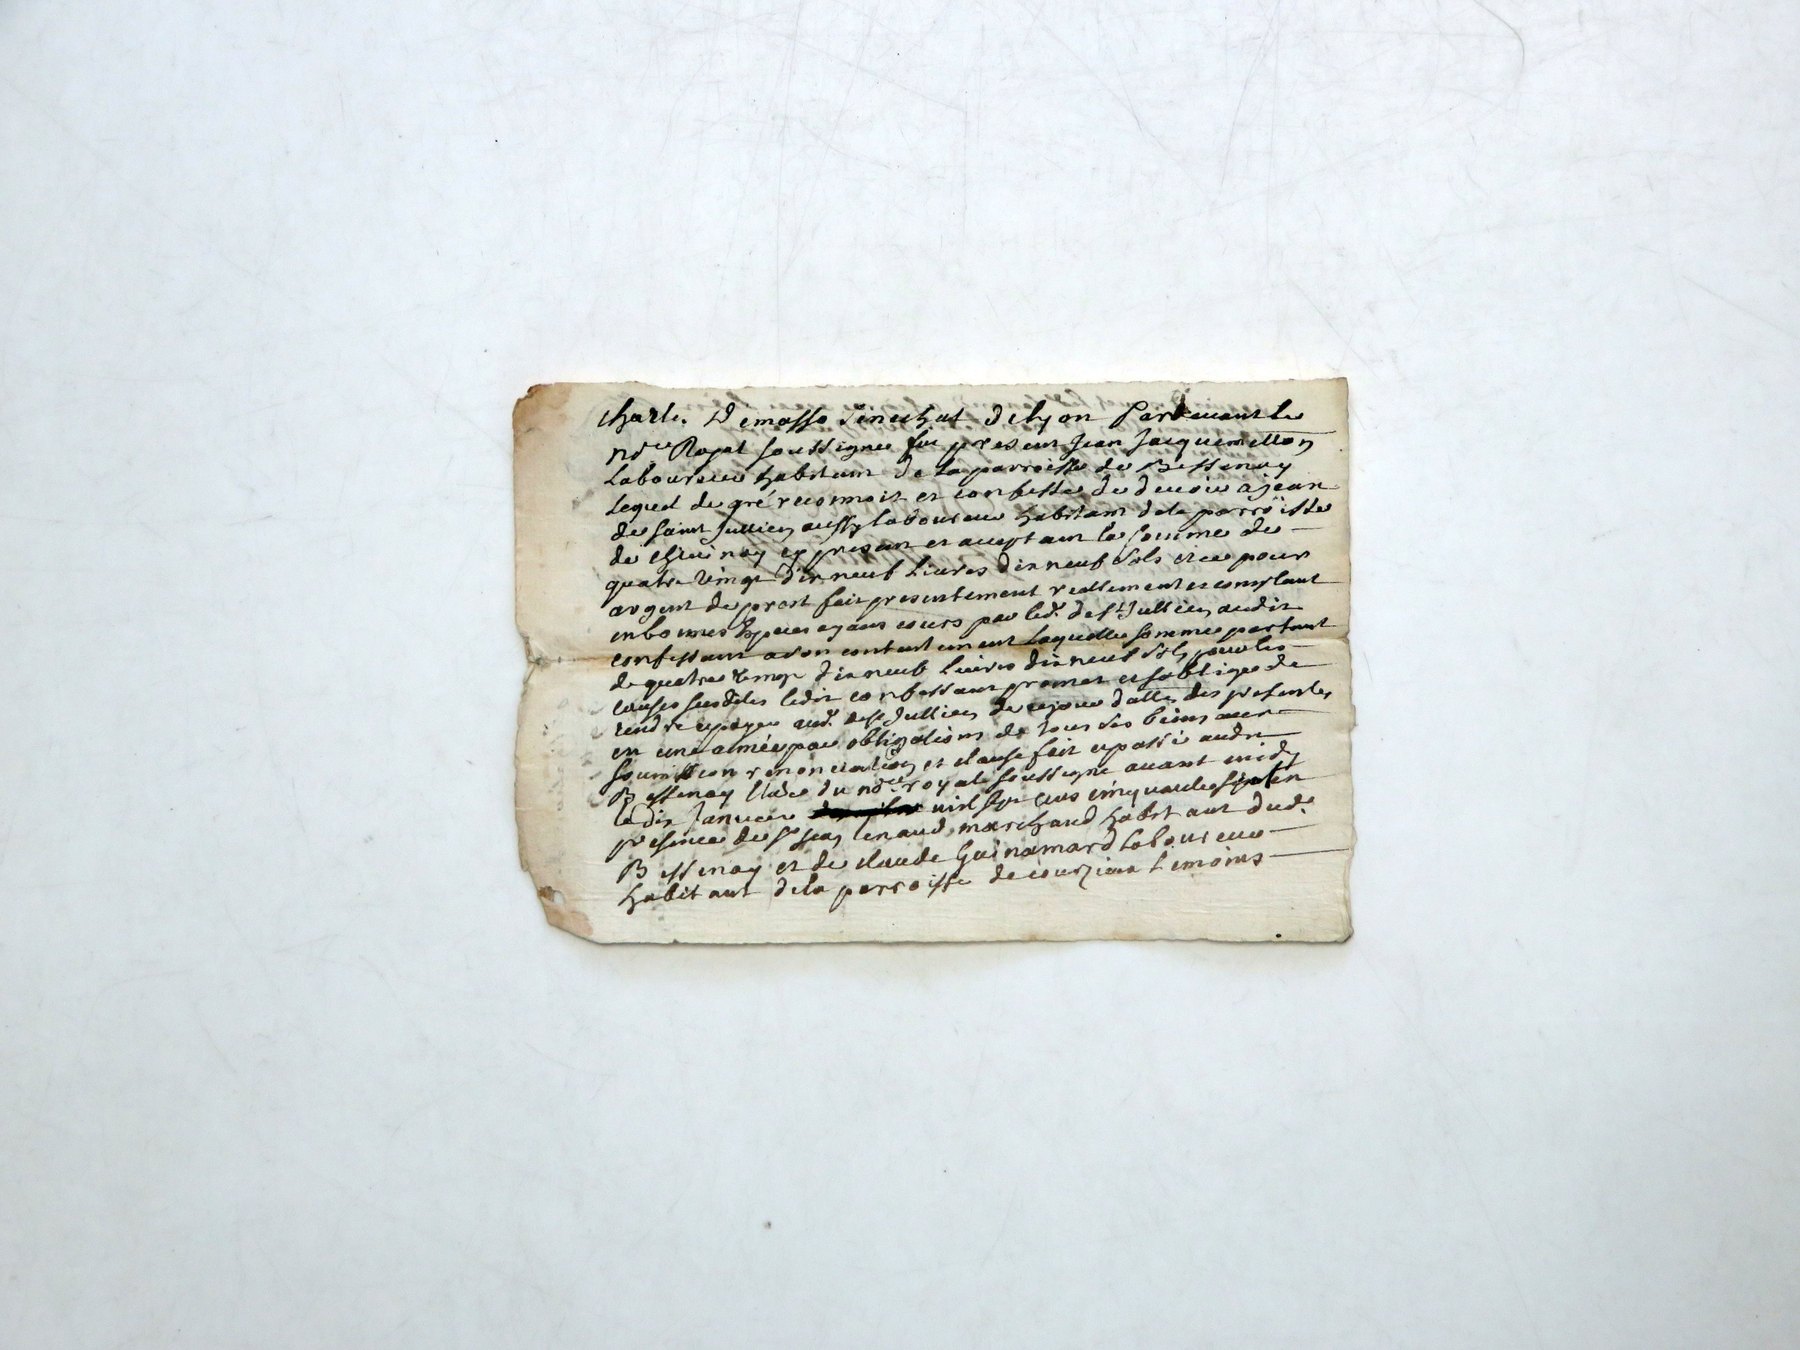 Charle. Demasso Senechal de lyon Pardevant Le
no.re Royal soussigné fut present Jean Jacquemetton
Laboureur habitant de La parroisse de Bessenay
Lequel de gré reconnoit et confesse de devoir a jean
de saint jullien aussy laboureur habitant de la parroisse
de Chevinay cy present et aceptant la somme de
quatre vingt dix neuf Livres dix neuf sols et ce pour
argent de prest fait presentement reellement et comptant
en bonnes Especes ayant cours par led. de st jullien audit
confessant a son contentement Laquelle somme partant
de quatre vingt dix neuf Livres dix neuf sols pour les
causes susdites ledit confessant promet et soblige de
rendre et payer aud. de st jullien de ce jour dattes des presentes
en une année par obligations de tous ses biens avec
soumission renonciation et clause fait et passé audit
Bessenay Etude du no.re royal soussigné avant midy
le dix Janvier mil sept cens cinquante sept en
presence de sr jean benaud marchand habitant dud.
Bessenay et de claude Guinamard laboureur
habitant de la parroisse de courzieu temoins